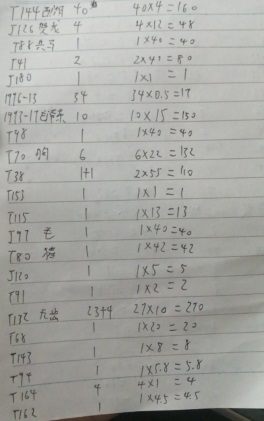 T144西湖 40 40×4=160
J126贺龙 4 4×12=48
T88兵马 1 1×40=40
T41 2 2×40=80
J180 1 1×1=1
1996-13 34 34×0.5=17
10 10×15=150
T98 1 1×40=40
T70狗 6 6×22=132
T38 1+1 2×55=110
T153 1 1×1=1
T115 1 1×13=13
J97 毛 1 1×40=40
T80 猪 1 1×42=42
J120 1 1×5=5
T91 1 1×2=2
T132 2344 27×10=270
T68 1 1×20=20
T143 1 1×8=8
T99 1 1×5.8=5.8
T164 4 4×1=4
T162 1 1×4.5=4.5